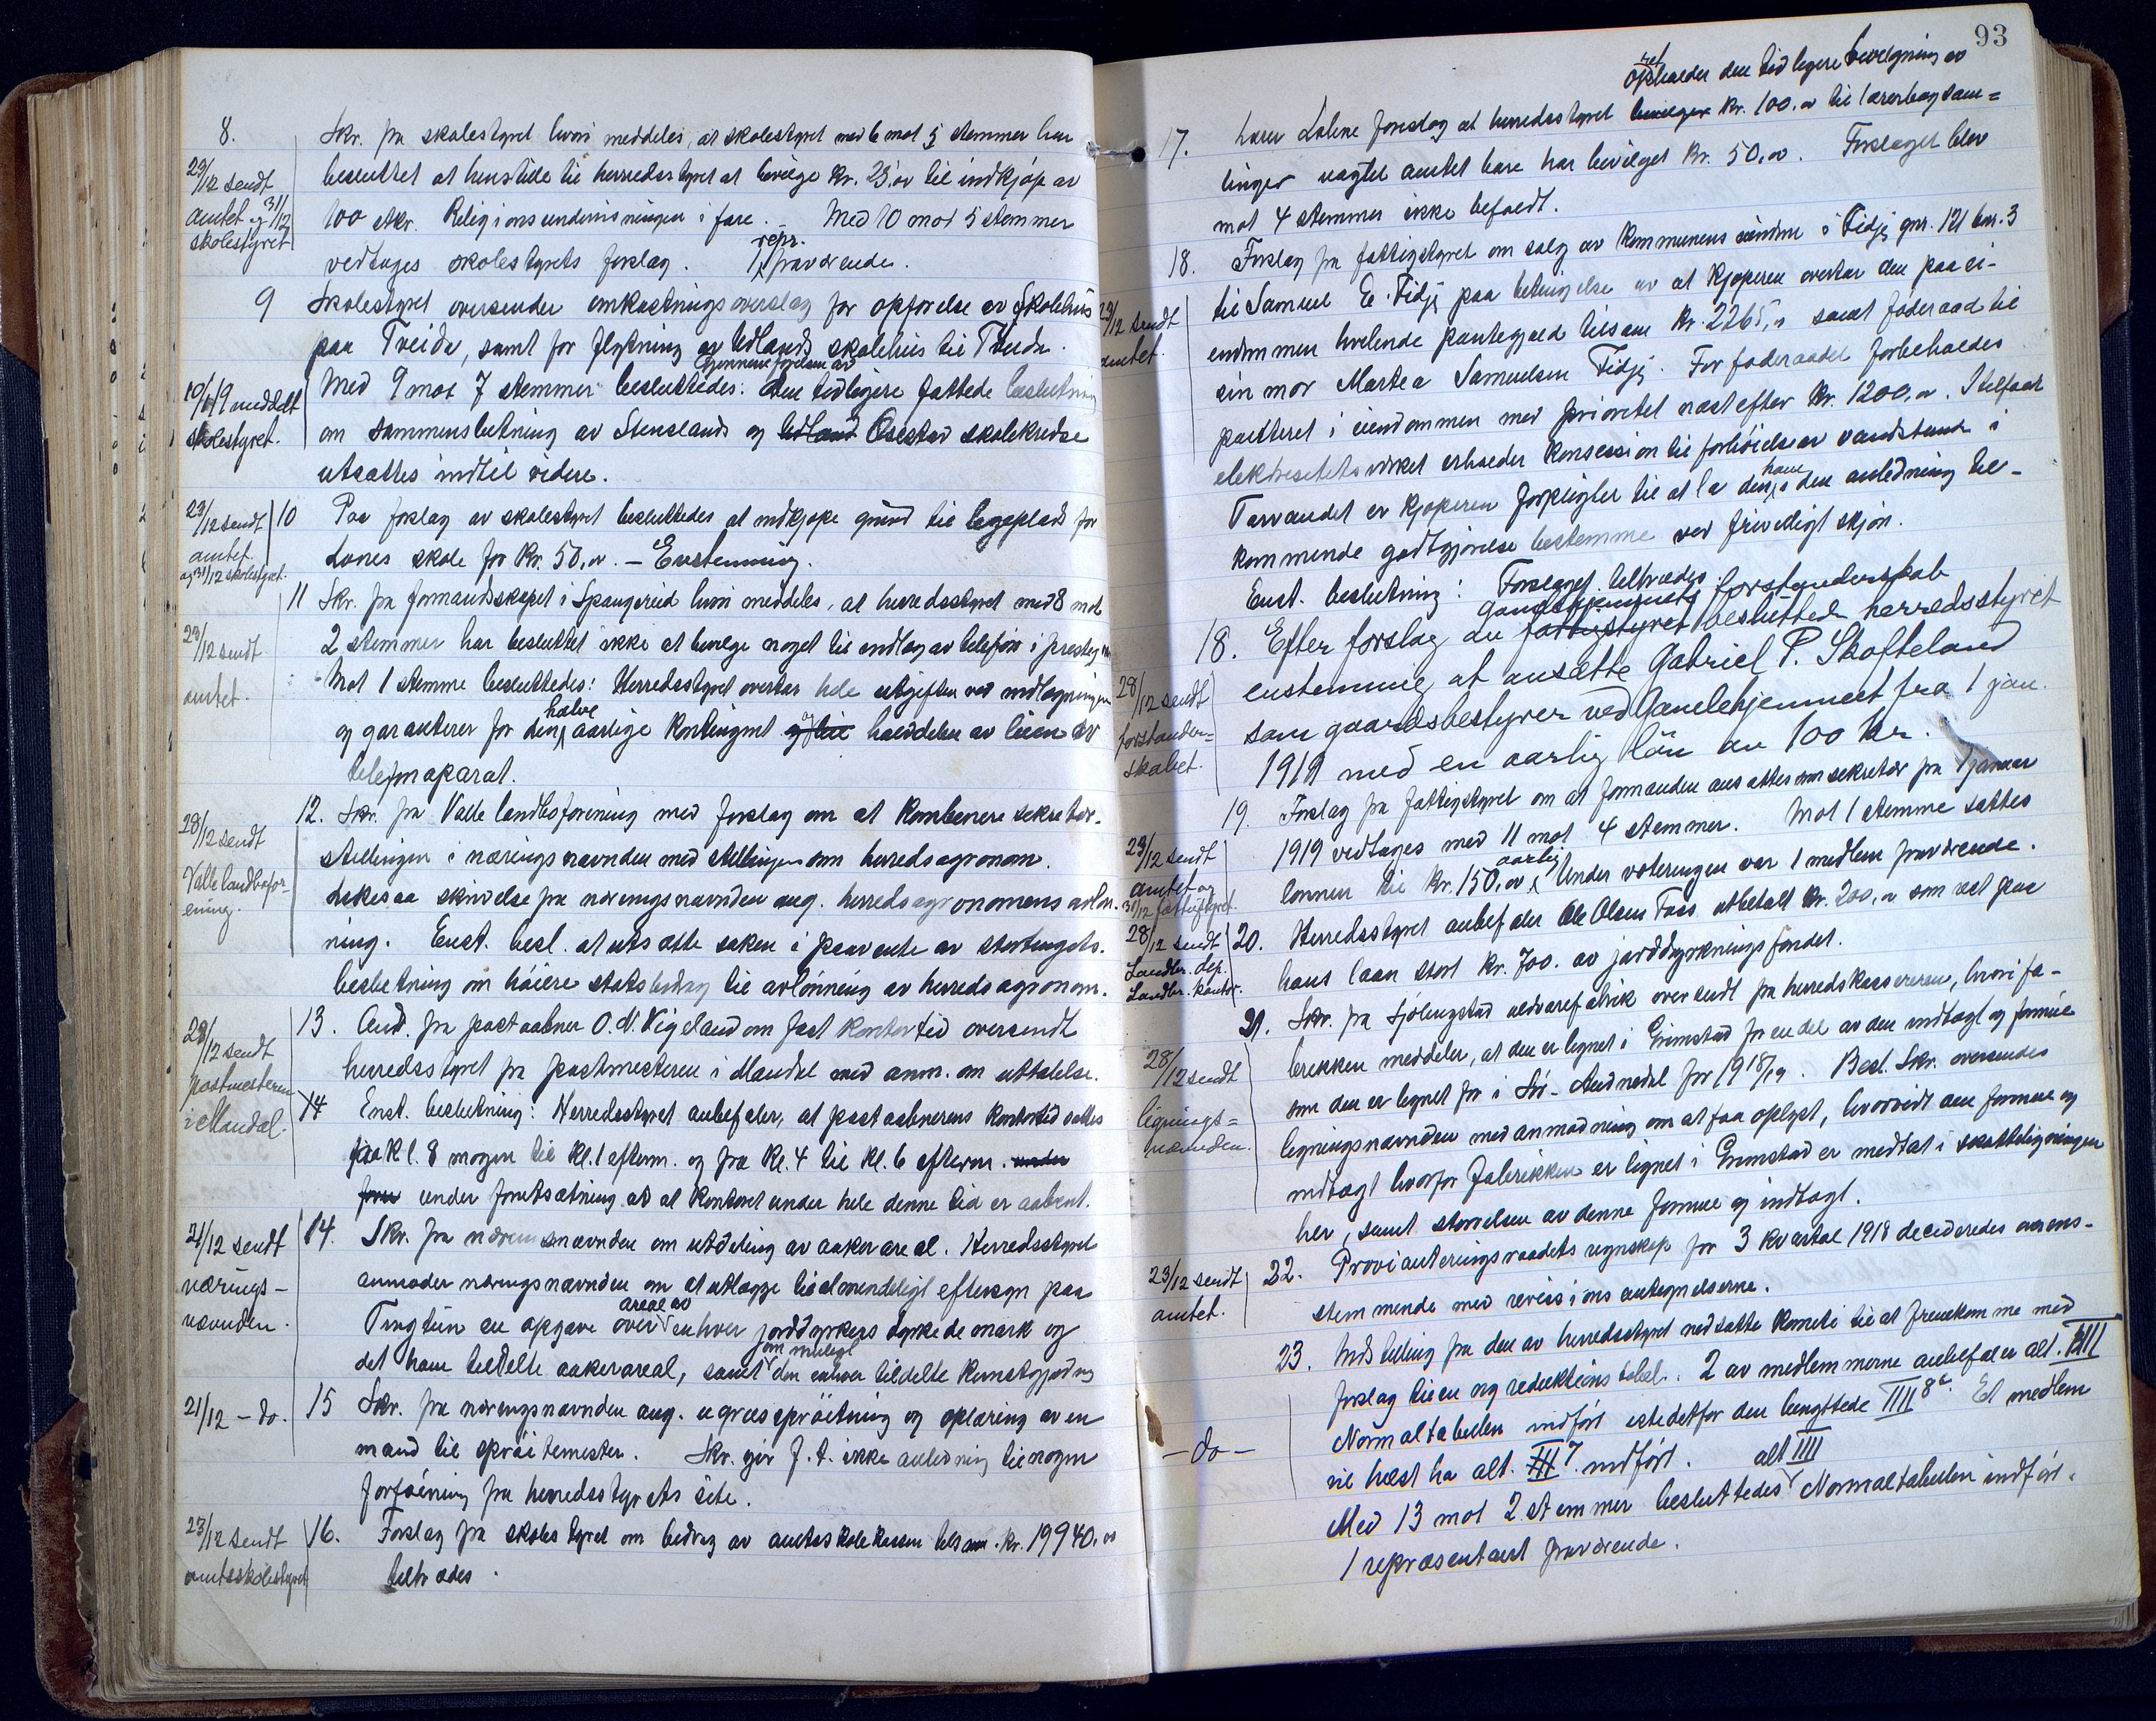 8. Skr. fra skolestyret hvori meddeles, at skolestyret med 6 mot 5 stemmer har
29/12 sendt amtet og 31/12 skolestyret
besluttet at henstille til herredsstyret at bevilge kr. 25,00 til indkjøp av
100 skr. Religionsundervisningen i fare. Med 10 mot 5 stemmer
vedtages skolestyrets forslag. 1 repr. fraværende.
9 Skolestyret oversender omkostningsoverslag for opførelse av skolehus
paa Treide, samt for flytning av Udlands skolehus til Treide.
10/1 19 meddelt skolestyret.
Med 9 mot 7 stemmer besluttedes: Gjennemførelsen av den tidligere fattede beslutning
om sammenslutning av Stenslands og Udland Osestad skolekredse
utsættes indtil videre.
23/12 sendt amtet. og 31/12 skolestyret.
10 Paa forslag av skolestyret besluttedes at indkjøpe grund til legeplads for
Lones skole for kr. 50,00. – Enstemmig.
11 Skr. fra formandskapet i Spangereid hvori meddeles, at herredsstyret med 8 mot
23/12 sendt amtet.
2 stemmer har besluttet ikke at bevilge noget til indlæg av telefon i presteg
Mot 1 stemme besluttedes: Herredsstyret overtar hele utgiften ved indlægningen
og garanterer for den halve aarlige kontingent og leie halvdelen av leien av
telefonaparat.
12. Skr. fra Valle landboforening med forslag om at kombinere sekretær-
28/12 sendt Valle landbofor-ening.
stillingen i næringsnævnden med stillingen som herredsagronom.
Likesaa skrivelse fra næringsnævnden ang. herredsagronomens avløn-
ning. Enst. besl. at utsætte saken i paavente av stortingets
beslutning om høiere statsbidrag til avlønning av herredsagronom.
28/12 sendt postmesteren i Mandal.
13. And. fra postaabner O. N. Vigeland om fast kontortid oversendt
herredsstyret fra postmesteren i Mandal med anm. om uttalelse.
14 Enst. beslutning: Herredsstyret anbefaler, at postaabnerens kontortid sættes
fra kl. 8 morgen til kl. 1 efterm. og fra kl. 4 til kl. 6 efterm. under
foru under forutsætning av at kontoret under hele denne tid er aabent.
21/12 sendt nærings-nævnden.
14. Skr. fra næringsnævnden om utdeling av aakerareal. Herredsstyret
anmoder næringsnævnden om at utlægge til almindeligt eftersyn paa
Tingtun en opgave over areal av enhver jorddyrkers dyrkede mark og
det ham tildelte aakerareal, samt om muligt den enhver tildelte kunstgjødning
21/12 – do.
15 Skr. fra næringsnævnden ang. ugræssprøitning og oplæring av en
mand til sprøitemester. Skr. gir f. t. ikke anledning til nogen
forføining fra herredsstyrets side.
23/12 sendt amtsskolestyret
16. Forslag fra skolestyret om bidrag av amtsskolekassen tilsam. kr. 19940,00
tiltrædes.
93
17. Lærer Løhne forslag at herredsstyret bevilger opretholder den tidligere bevilgning av kr. 100,00 til lærerbogsam=
linger uagtet amtet bare har bevilget kr. 50,00. Forslaget blev
mot 4 stemmer ikke befordt.
18. Forslag fra fattigstyret om salg av kommunens eiendom i Fidje gnr. 121 bnr. 3
23/12 sendt amtet.
til Samuel E. Fidje paa betingelse av at kjøperen overtar den paa ei-
endommen hvilende pantegjæld tilsam kr. 2265,00 samt føderaad til
sin mor Martea Samuelsen Fidje. For føderaadet forbeholdes
panteret i eiendommen med prioritet næst efter kr. 1200,00. I tilfælde
elektresitetsverket erholder konsession til forhøielse av vandstand i
Tarvandet er kjøperen forpligtet til at la den ham i den anledning til-
kommende godtgjørelse bestemme ved frivilligt skjøn.
Enst. beslutning: Forslaget tiltrædes.
18. Efter forslag av fattigstyret Gamlehjemmets forstanderskab besluttede herredsstyret
28/12 sendt forstander=skabet.
enstemmig at ansætte Gabriel P. Skofteland
som gaardsbestyrer ved Gamlehjemmet fra 1 jan.
1919 med en aarlig løn av 100 kr.
19. Forslag fra fattigstyret om at formanden ansættes som sekretær fra 1 januar
23/12 sendt amtet og 31/12 fattigstyret.
1919 vedtages med 11 mot 4 stemmer. Mot 1 stemme sattes
lønnen til kr. 150,00 aarlig. Under voteringen var 1 medlem fraværende.
28/12 sendt Landbr. dep. Landbr. kontor.
20. Herredsstyret anbefaler Ole Olsens Foss utbetalt kr. 200,00 som rest paa
hans laan stort kr. 700. av jorddyrkningsfondet.
21. Skr. fra Sjølingstad uldvarefabrik oversendt fra herredskassereren, hvori fa-
28/12 sendt lignings=nævnden.
brikken meddeler, at den er lignet i Grimstad for en del av den indtægt og formue
som den er lignet for i Sør-Audnedal for 1918/19. Besl. Skr. oversendes
ligningsnævnden med anmodning om at faa oplyst, hvorvidt den formue og
indtægt hvorfor fabrikken er lignet i Grimstad er medtat i skatteligningen
her, samt størrelsen av denne formue og indtægt.
23/12 sendt amtet.
22. Provianteringsraadets regnskap for 3 kvartal 1918 decideredes overens-
stemmende med revisionsantegnelserne.
23. Indstilling fra den av herredsstyret nedsatte komite til at fremkomme med
– do –
forslag til en ny reduktionstabel. 2 av medlemmerne anbefaler alt. IIII
Normaltabellen indført istedetfor den benyttede IIII 8de. Et medlem
vil helst ha alt. III 7. indført.
Med 13 mot 2 stemmer besluttedes alt IIII Normaltabellen indført.
1 repræsentant fraværende.